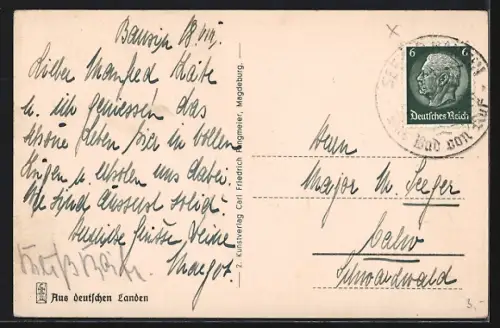 Bansin 18. VIII.
Lieber Manfred Käte
u. ich geniessen das
schöne Leben hier in vollen
Zügen u. erholen uns dabei.
Wir sind äusserst solid.
Herzliche Grüsse Deine
Margot.
Gruß Käte.
Aus deutschen Landen
2. Kunstverlag Carl Friedrich Fangmeier, Magdeburg.
6 6
Deutsches Reich
Herrn
Major M. Seeger
Calw
Schwarzwald
3,-